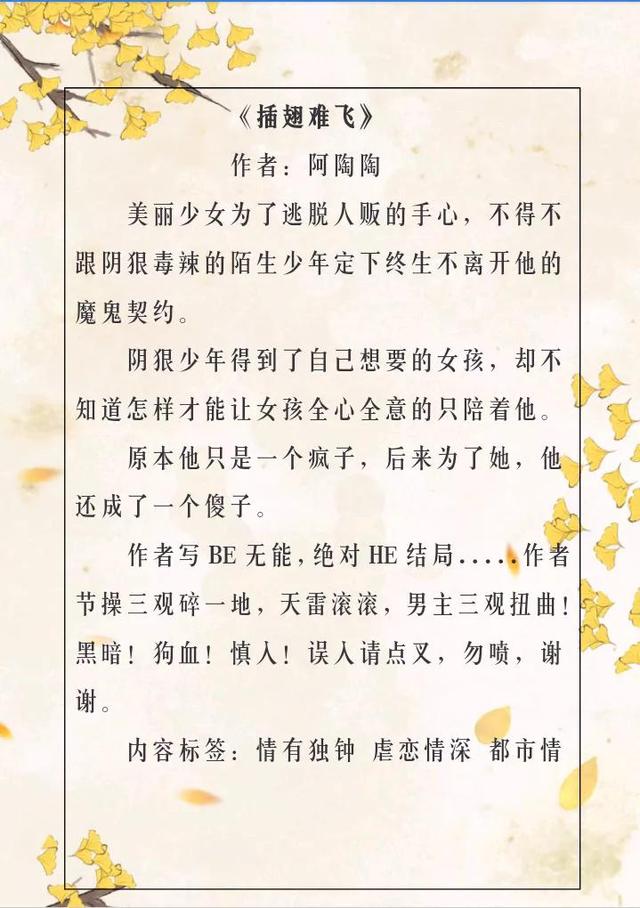 《插翅难飞》
作者：阿陶陶
美丽少女为了逃脱人贩的手心，不得不
跟阴狠毒辣的陌生少年定下终生不离开他的
魔鬼契约。
阴狠少年得到了自己想要的女孩，却不
知道怎样才能让女孩全心全意的只陪着他。
原本他只是一个疯子，后来为了她，他
还成了一个傻子。
作者写 BE 无能，绝对 HE 结局.....作者
节操三观碎一地，天雷滚滚，男主三观扭曲！
黑暗！狗血！慎入！误入请点叉，勿喷，谢
谢。
内容标签：情有独钟 虐恋情深 都市情